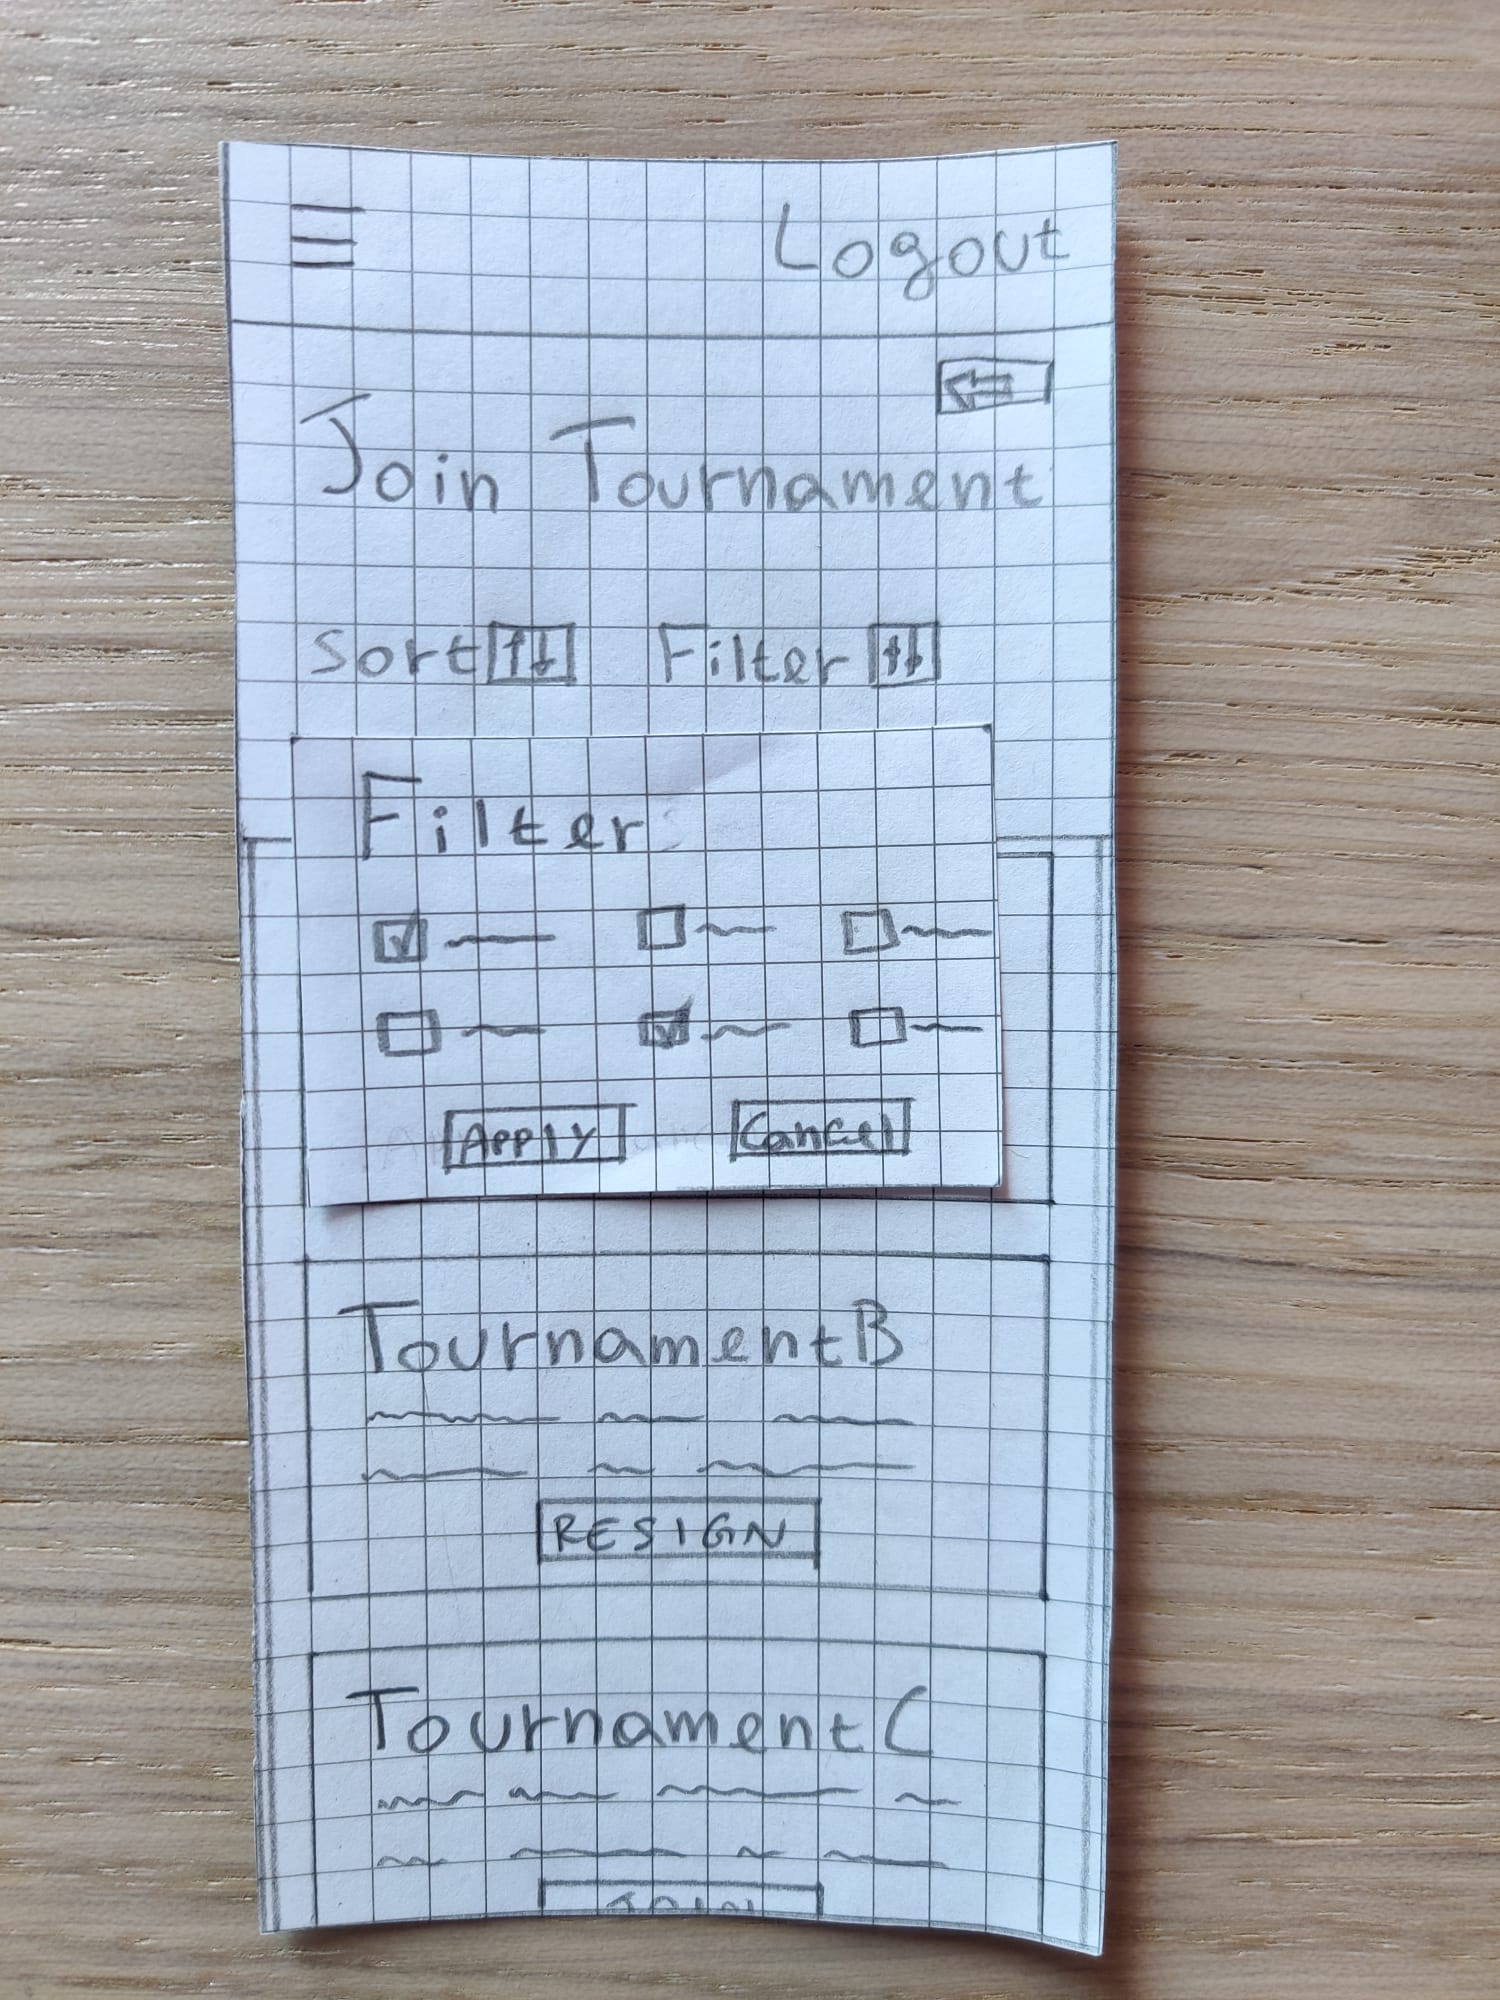 Logout
Join Tournament
Sort Filter
Filter
APPlY Cancel
TournamentB
RESIGN
TournamentC
JOIN